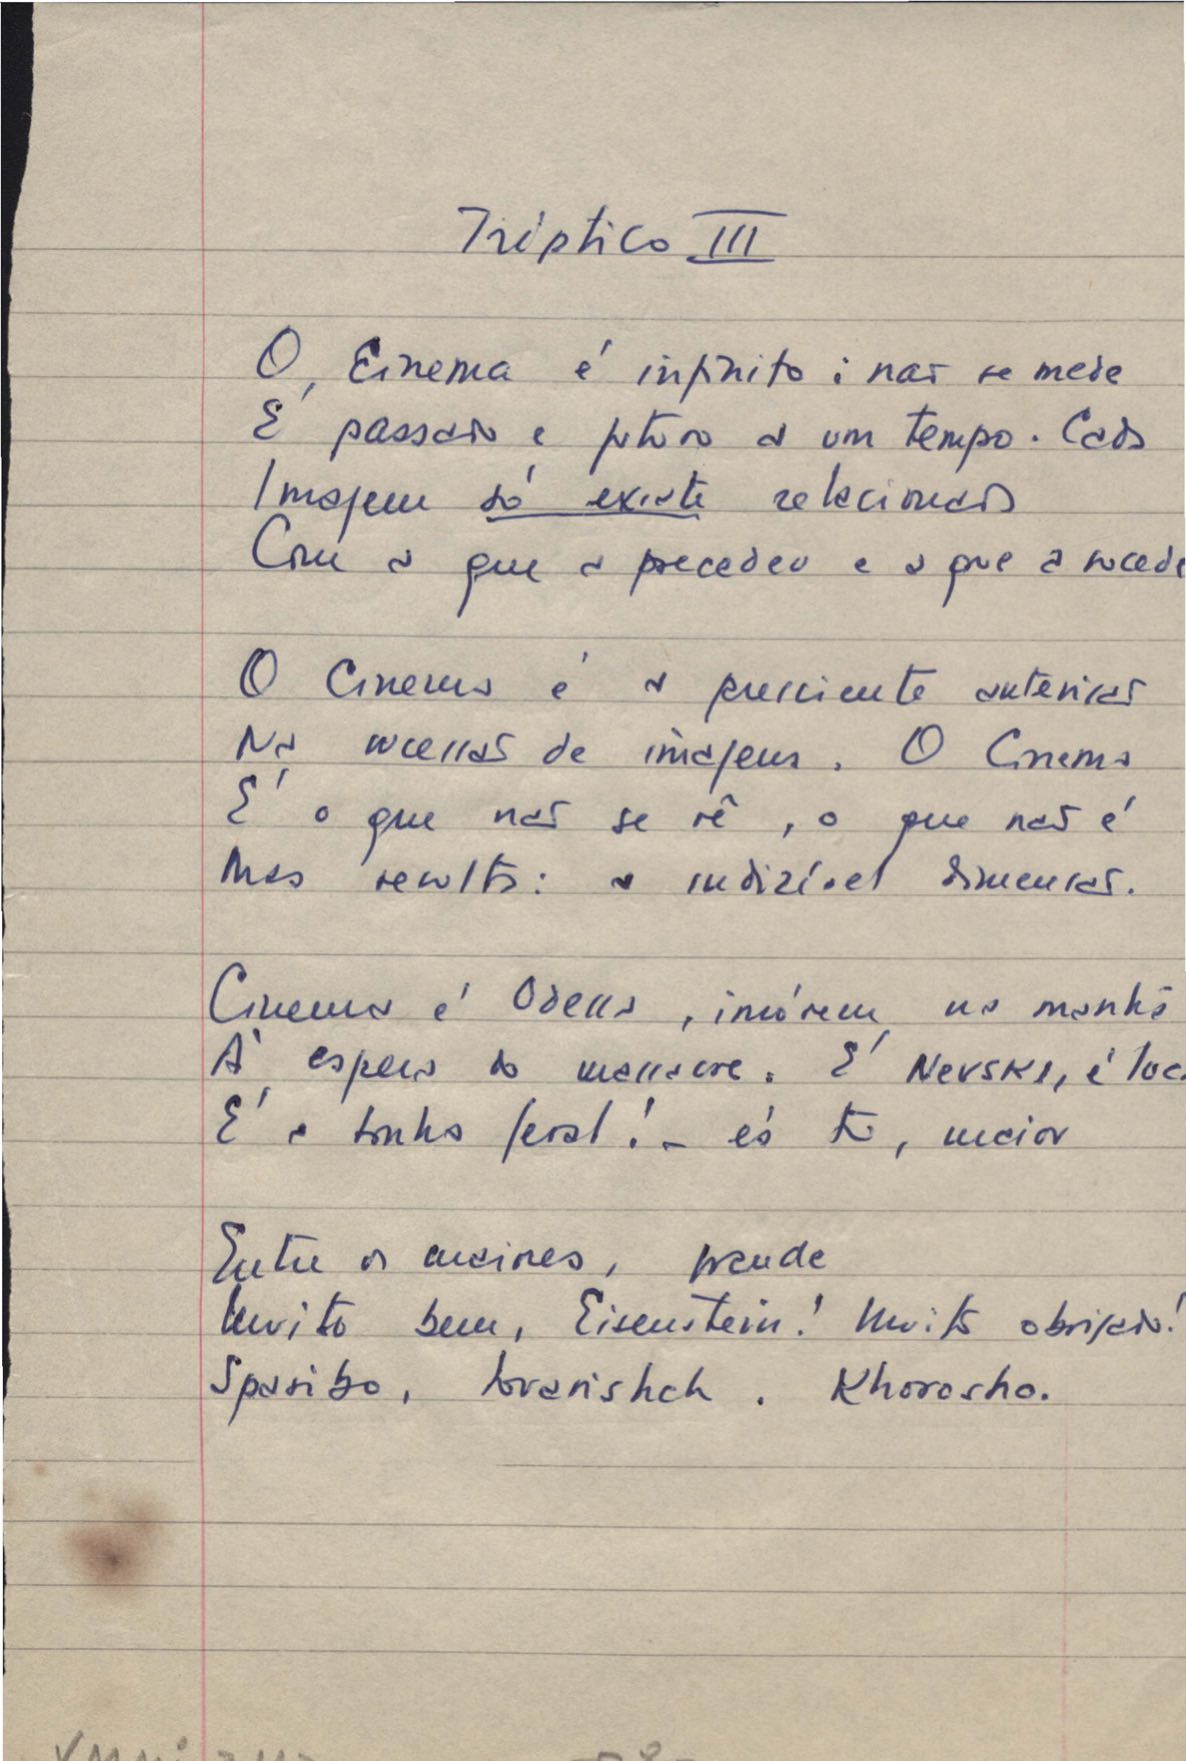 Tríptico III
O Cinema é infinito: não se mede
É passado e futuro a um tempo. Cada
Imagem só existe relacionada
Com a que a precedeu e a que a sucede
O Cinema é a presciente antevisão
Na sucessão de imagens. O Cinema
É o que não se vê, o que não é
Mas resulta: a indizível dimensão.
Cinema é Odessa, imóvel na manhã
À espera do massacre. É Nevski, é
É a linha geral! - és tu, maior
Entre os maiores, grande
Muito bem, Eisenstein! Muito obrigado!
Spasibo, tovarishch. Khorosho.